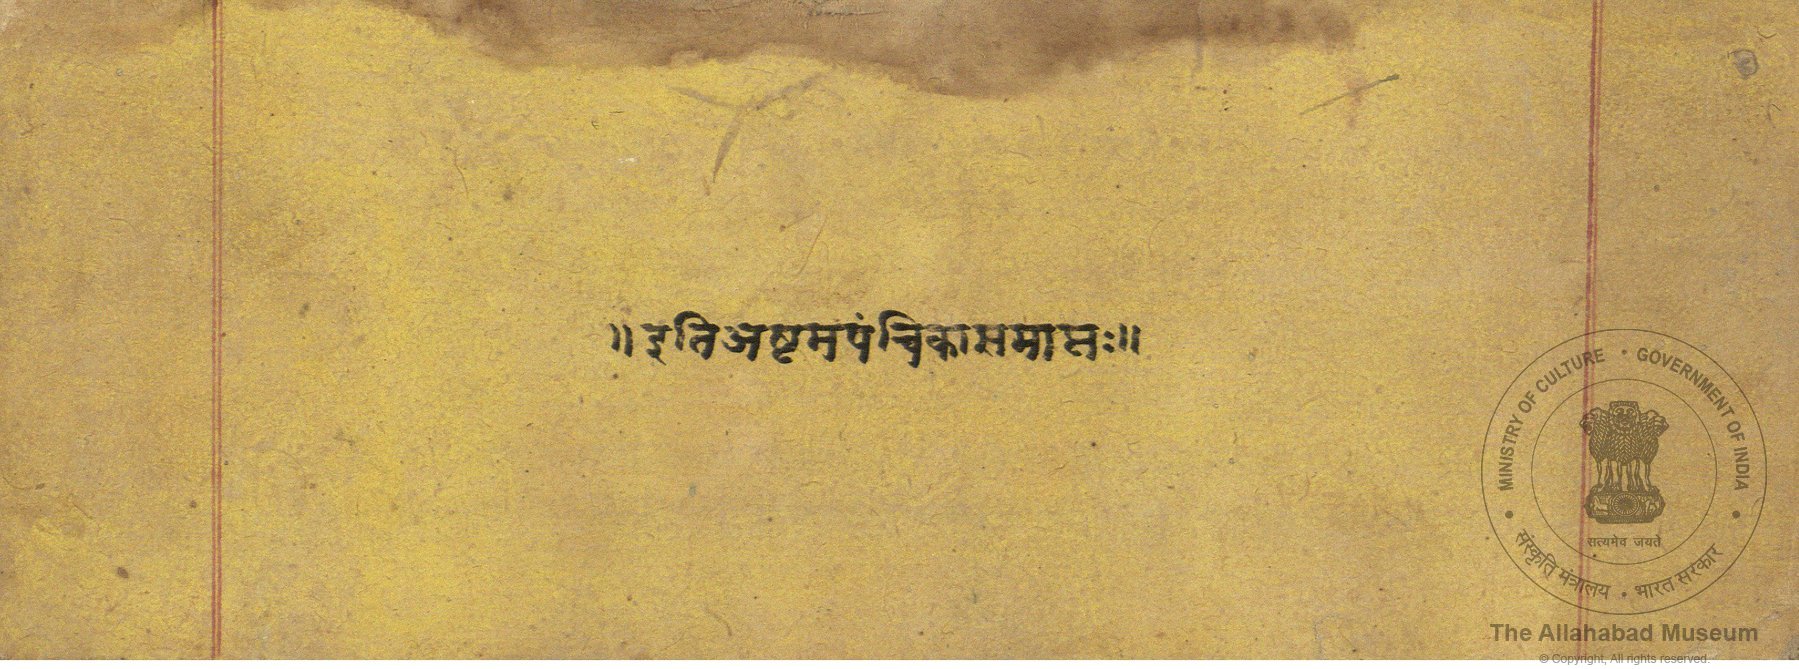 ॥ इति अष्टमपंचिका समाप्तः॥
MINISTRY OF CULTURE • GOVERNMENT OF INDIA
सत्यमेव जयते
संस्कृति मंत्रालय • भारत सरकार
The Allahabad Museum
© Copyright, All rights reserved.